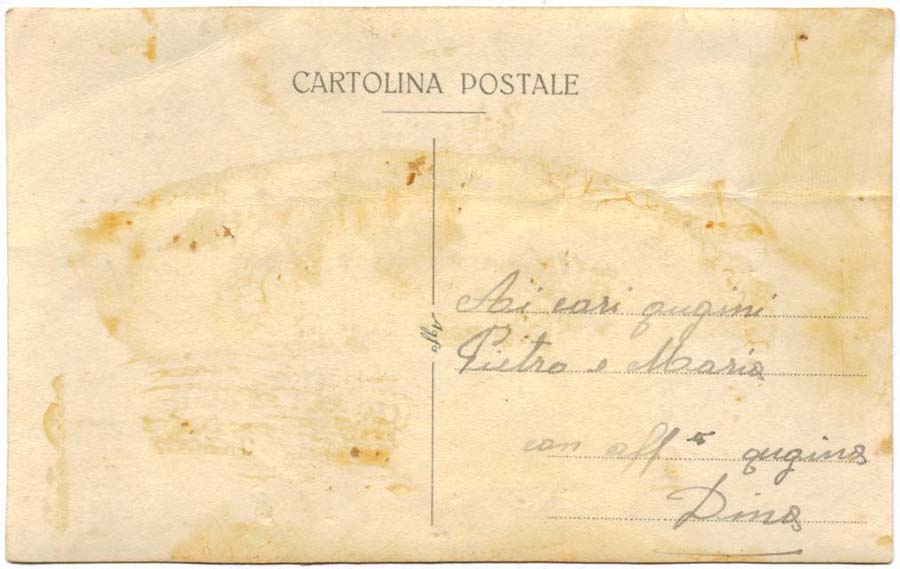 CARTOLINA POSTALE
Agfa
Ai cari qugini
Pietro e Maria
con aff. qugina
Dina